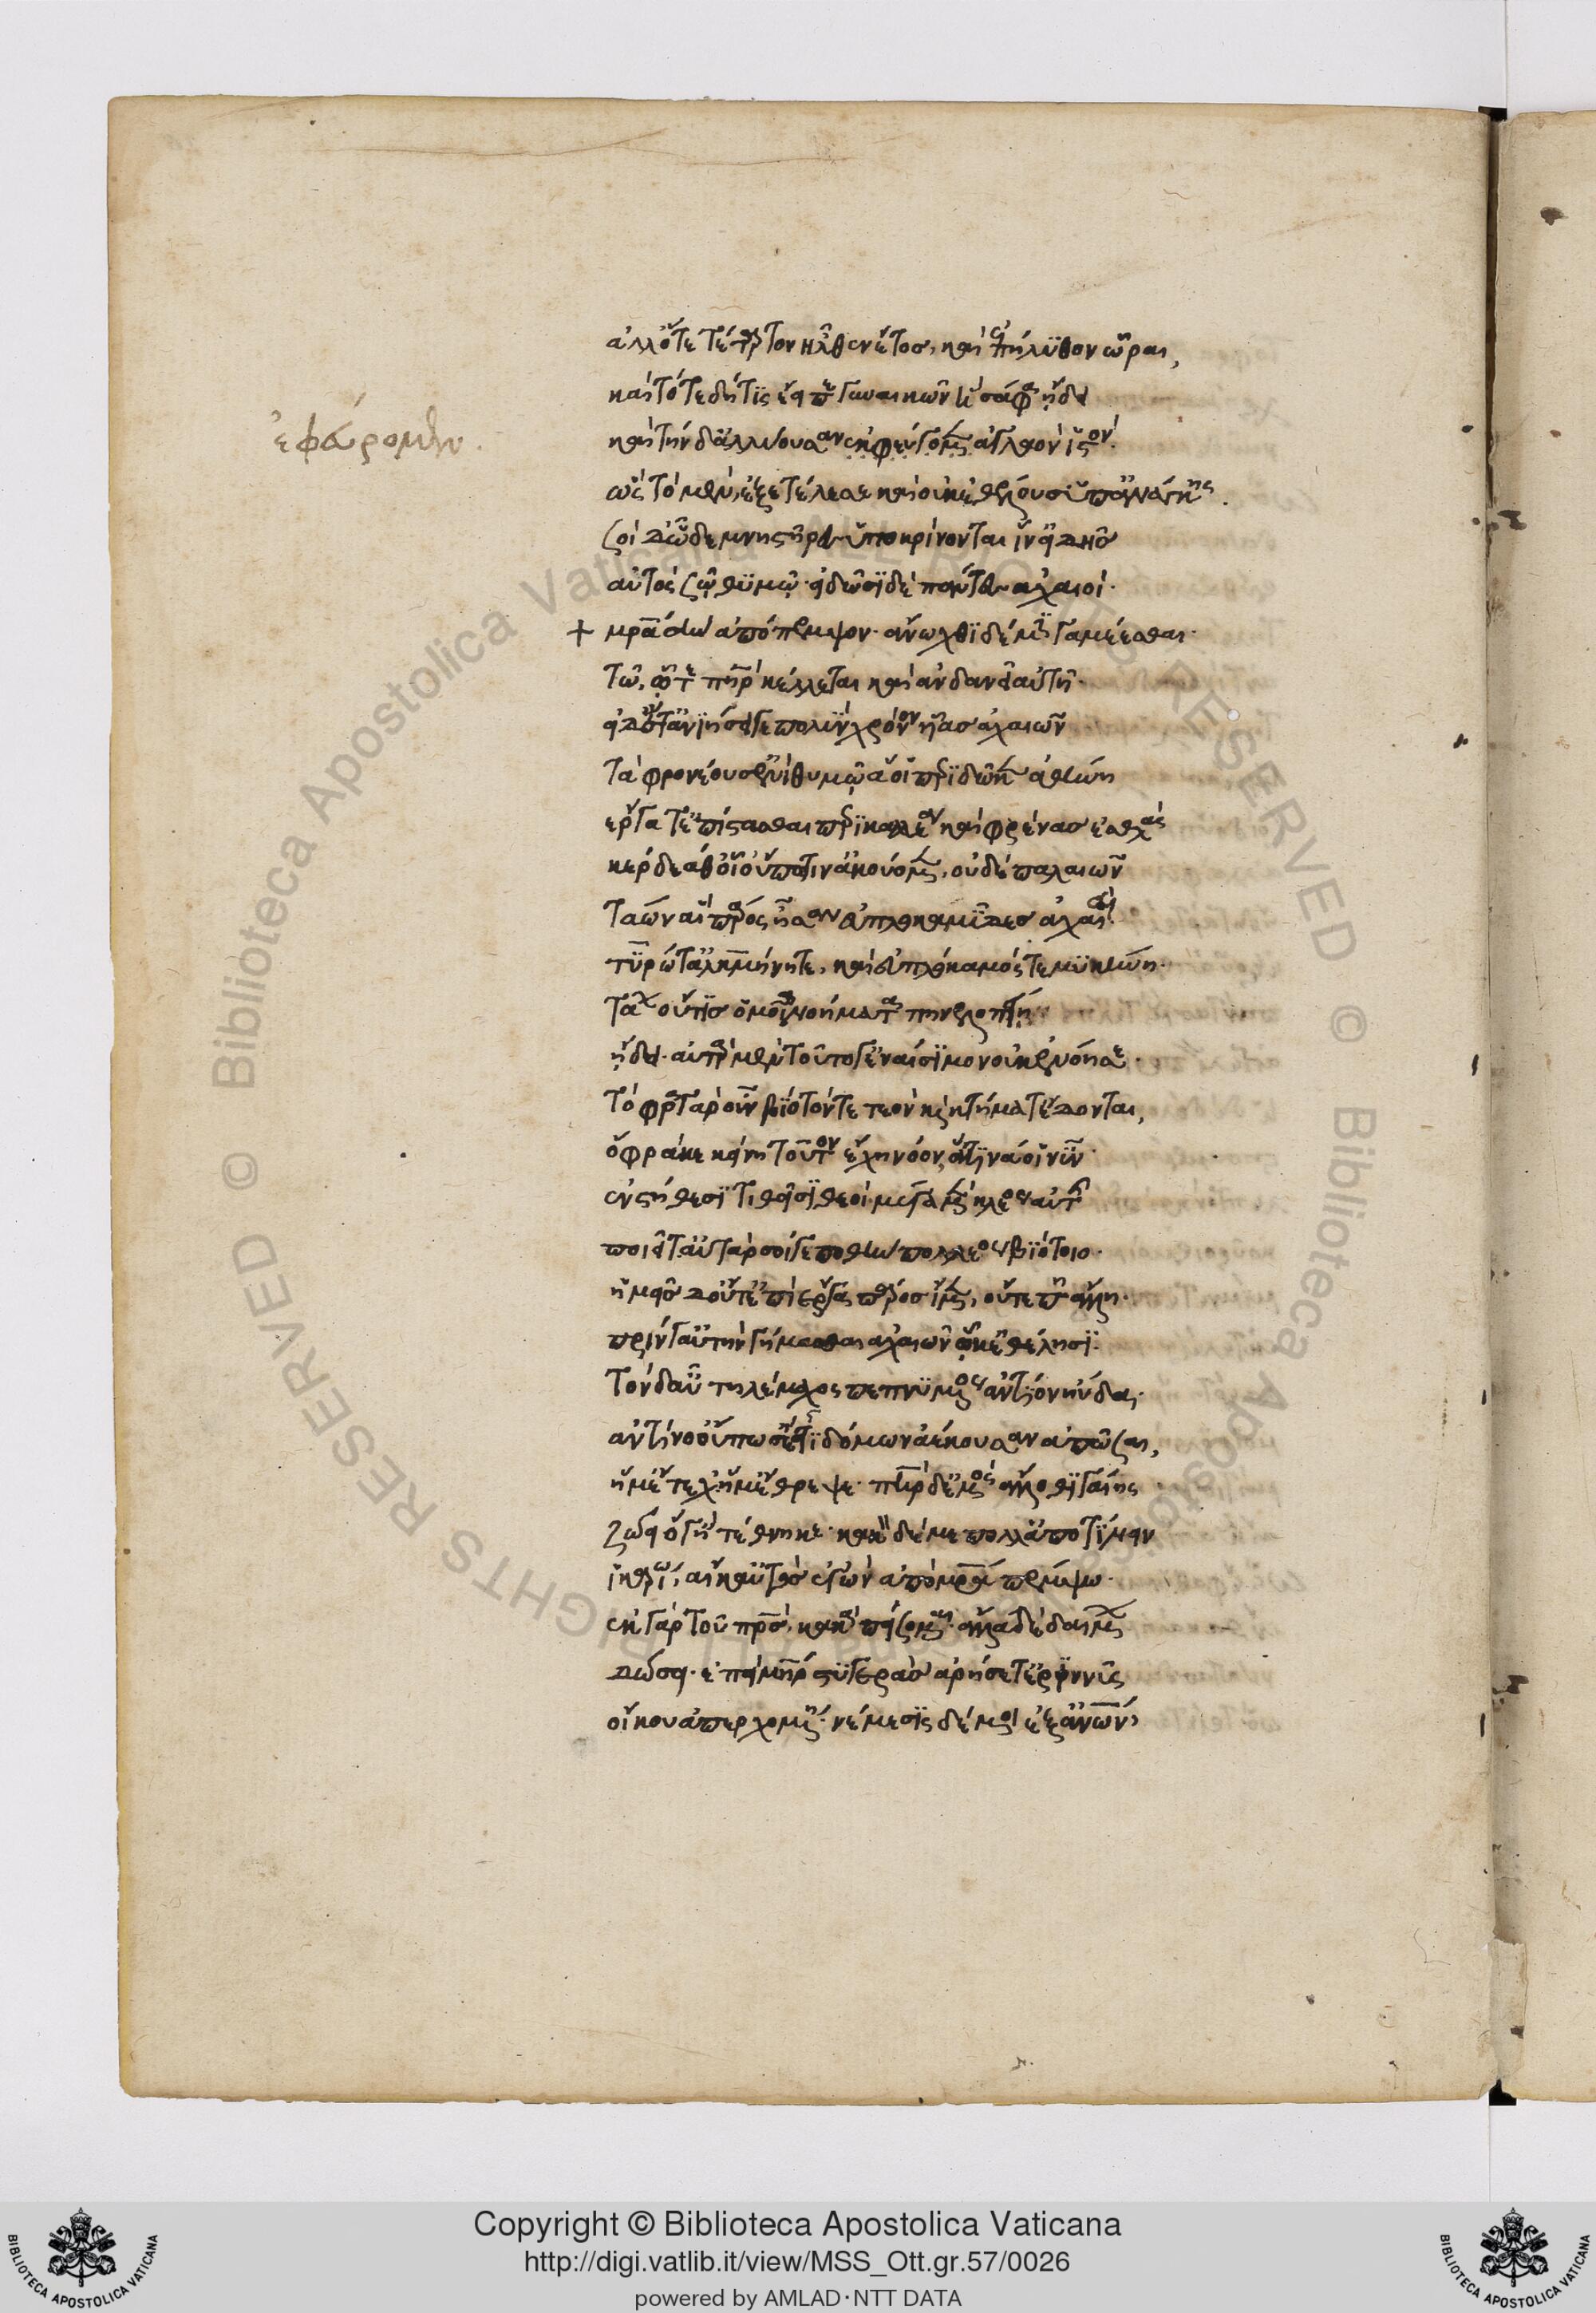 ἀλλ' ὅτε τέτρατον ἦλθεν ἔτος, καὶ ἐπήλυθον ὧραι,
καὶ τότε δή τις ἔειπε γυναικῶν ἣ σάφα ᾔδει
ἐφεύρομεν.
καὶ τήν δ' ἀλλύουσαν ἐφεύρομεν ἀγλαὸν ἱστόν.
ὣς τὸ μὲν ἐξετέλεσε καὶ οὐκ ἐθέλουσ' ὑπ' ἀνάγκης.
σοὶ δ' ὧδε μνηστῆρες ὑποκρίνονται ἵν' εἰδῇς
αὐτὸς σῷ θυμῷ· εἰδῶσι δὲ πάντες ἀχαιοί.
+ μητέρα σὴν ἀπόπεμψον· ἄνωχθι δέ μιν γαμέεσθαι·
τῷ, ὅτεῳ τε πατὴρ κέλεται καὶ ἁνδάνει αὐτῇ·
εἰ δ' ἔτ' ἀνιήσει γε πολὺν χρόνον υἷας ἀχαιῶν
τὰ φρονέουσ' ἐνὶ θυμῷ ἅ οἱ περὶ δῶκεν ἀθήνη
ἔργα τ' ἐπίστασθαι περικαλλέα καὶ φρένας ἐσθλὰς
κέρδεά θ' οἷ' οὔπω τιν' ἀκούομεν, οὐδὲ παλαιῶν
τάων αἳ πάρος ἦσαν ἐϋπλοκαμῖδες ἀχαιαί·
τυρώ τ' ἀλκμήνη τε, καὶ ἐϋπλόκαμός τε μυκήνη·
τάων οὔτις ὁμοῖα νοήματα πηνελοπείῃ
ᾔδει· ἀτὰρ μὲν τοῦτό γ' ἐναίσιμον οὐκ ἐνόησε·
τόφρα γὰρ οὖν βίοτόν τε τεὸν καὶ κτήματ' ἔδονται,
ὄφρα κε κείνη τοῦτον ἔχῃ νόον, ὅν τινά οἱ νῦν
ἐν στήθεσι τιθεῖσι θεοί· μέγα μὲν κλέος αὐτῇ
ποιεῖτ' αὐτὰρ σοί γε ποθὴν πολέος βιότοιο·
ἡμεῖς δ' οὔτ' ἐπὶ ἔργα πάρος γ' ἴμεν, οὔτε πῃ ἄλλῃ·
πρίν γ' αὐτὴν γήμασθαι ἀχαιῶν ᾧ κ' ἐθέλῃσι·
τὸν δ' αὖ τηλέμαχος πεπνυμένος ἀντίον ηὔδα·
ἀντίνο' οὔπως ἔστι δόμων ἀέκουσαν ἀπῶσαι,
ἥ μ' ἔτεχ' ἥ μ' ἔθρεψε· πατὴρ δ' ἐμὸς ἄλλοθι γαίης
ζώει ὅγ' ἢ τέθνηκε· κακὸν δέ με πόλλ' ἀποτίνειν
ἰκαρίῳ, αἴ κ' αὐτὸς ἐγὼν ἀπὸ μητέρα πέμψω·
ἐκ γὰρ τοῦ πατρός, κακὰ πείσομαι· ἄλλα δὲ δαίμων
δώσει· ἐπεὶ μήτηρ στυγερὰς ἀρήσετ' ἐριννῦς
οἴκου ἀπερχομένη· νέμεσις δέ μοι ἐξ ἀνθρώπων
Copyright © Biblioteca Apostolica Vaticana
http://digi.vatlib.it/view/MSS_Ott.gr.57/0026
powered by AMLAD·NTT DATA